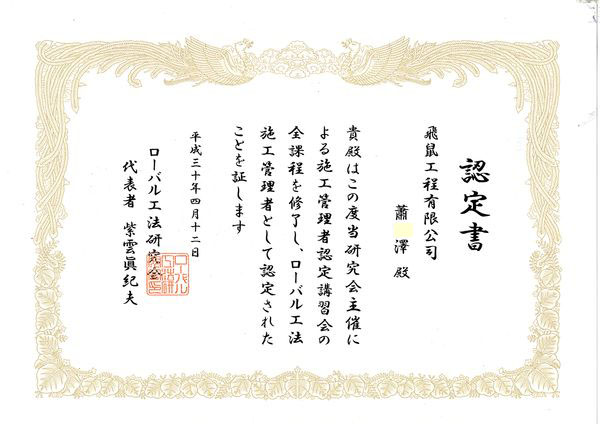 認定書
飛鼠工程有限公司
蕭 澤 殿
貴殿はこの度当研究会主催に
よる施工管理者認定講習会の
全課程を修了し、ローバル工法
施工管理者として認定された
ことを証します
平成三十年四月十二日
ローバル工法研究会
代表者 紫雲眞紀夫